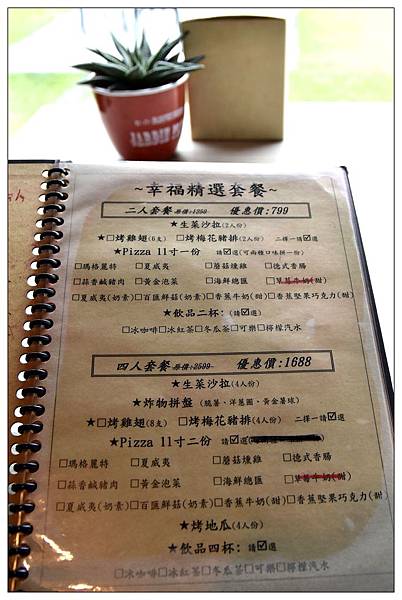 JARDIN
~幸福精選套餐~
二人套餐 原價:1250 優惠價:799
★生菜沙拉(2人份)
★□烤雞翅(6支) □烤梅花豬排(2人份) 二擇一請☑選
★Pizza 11寸一份 請☑選(可兩種口味拼一份)
□瑪格麗特 □夏威夷 □蘑菇燻雞 □德式香腸
□蒜香鹹豬肉 □黃金泡菜 □海鮮總匯 □草莓牛奶(甜)
□夏威夷(奶素) □百匯鮮菇(奶素) □香蕉牛奶(甜) □香蕉堅果巧克力(甜)
★飲品二杯:(請☑選)
□冰咖啡•□冰紅茶•□冬瓜茶•□可樂•□檸檬汽水
四人套餐 原價:2599 優惠價:1688
★生菜沙拉(4人份)
★炸物拼盤 (脆薯、洋蔥圈、黃金薯球)
★□烤雞翅(8支) □烤梅花豬排(4人份) 二擇一請☑選
★Pizza 11寸二份 請☑選
□瑪格麗特 □夏威夷 □蘑菇燻雞 □德式香腸
□蒜香鹹豬肉 □黃金泡菜 □海鮮總匯 □草莓牛奶(甜
□夏威夷(奶素) □百匯鮮菇(奶素) □香蕉牛奶(甜) □香蕉堅果巧克力(甜
★烤地瓜(4人份)
★飲品四杯:請☑選
□冰咖啡•□冰紅茶•□冬瓜茶•□可樂•□檸檬汽水